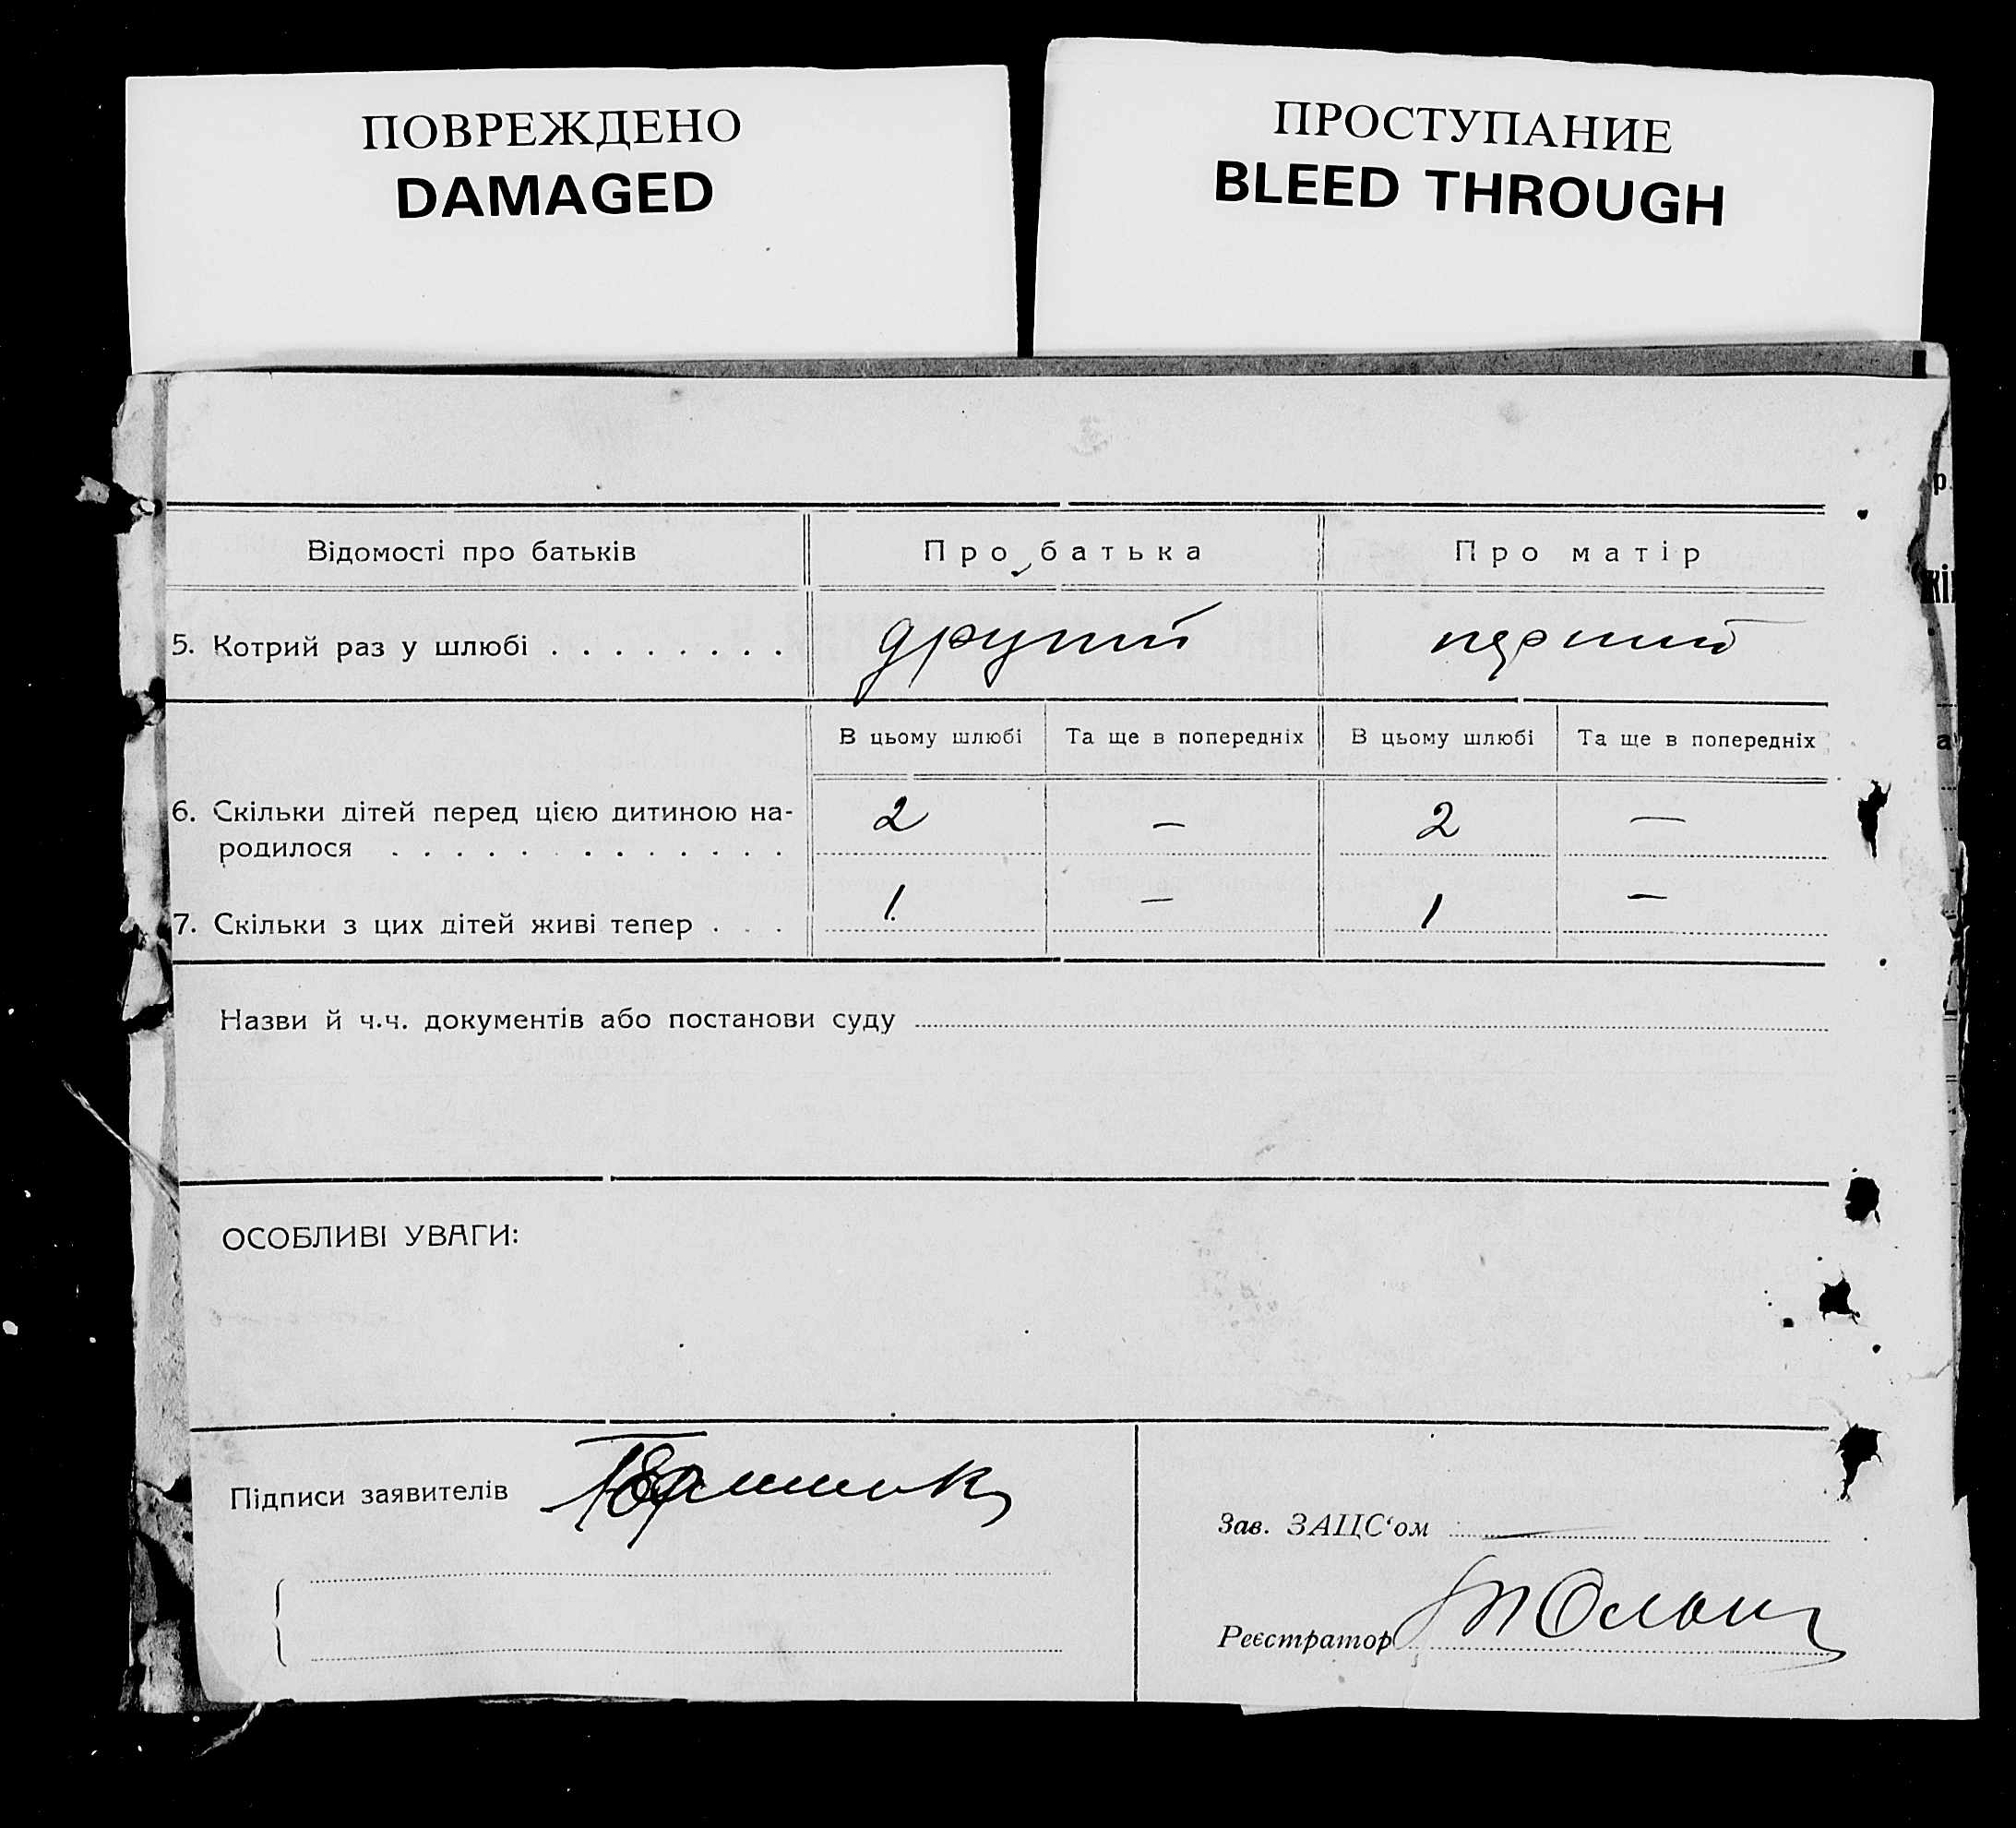 ПОВРЕЖДЕНО
DAMAGED
ПРОСТУПАНИЕ
BLEED THROUGH
Відомості про батьків
Про батька
Про матір
5. Котрий раз у шлюбі . . . . . . . .
другий
перший
В цьому шлюбі
Та ще в попередніх
В цьому шлюбі
Та ще в попередніх
6. Скільки дітей перед цією дитиною на-
родилося . . . . . . . . . . . . .
2
—
2
—
7. Скільки з цих дітей живі тепер . . .
1
—
1
—
Назви й ч.ч. документів або постанови суду
ОСОБЛИВІ УВАГИ:
Підписи заявителів
Зав. ЗАЦС‘ом
Реєстратор